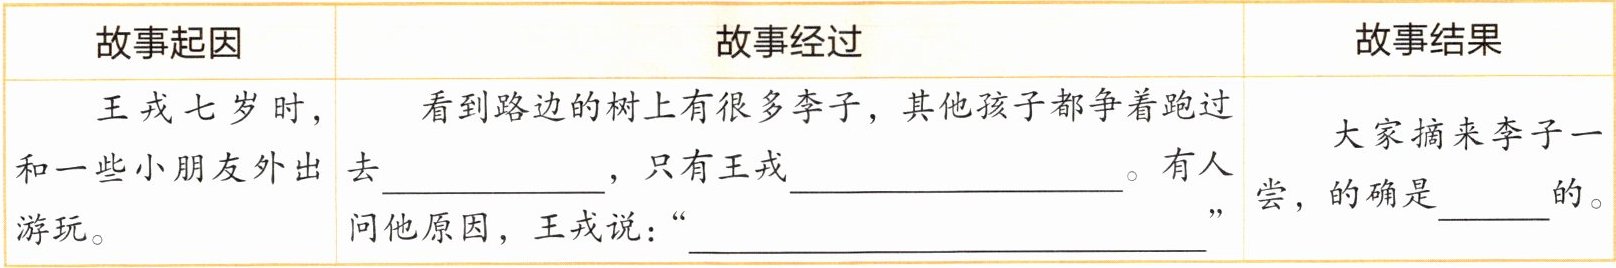 故事起因
故事经过
故事结果
王戎七岁时，
和一些小朋友外出
游玩。
看到路边的树上有很多李子，其他孩子都争着跑过
去____________，只有王戎__________________。有人
问他原因，王戎说：“____________________________”
大家摘来李子一
尝，的确是______的。